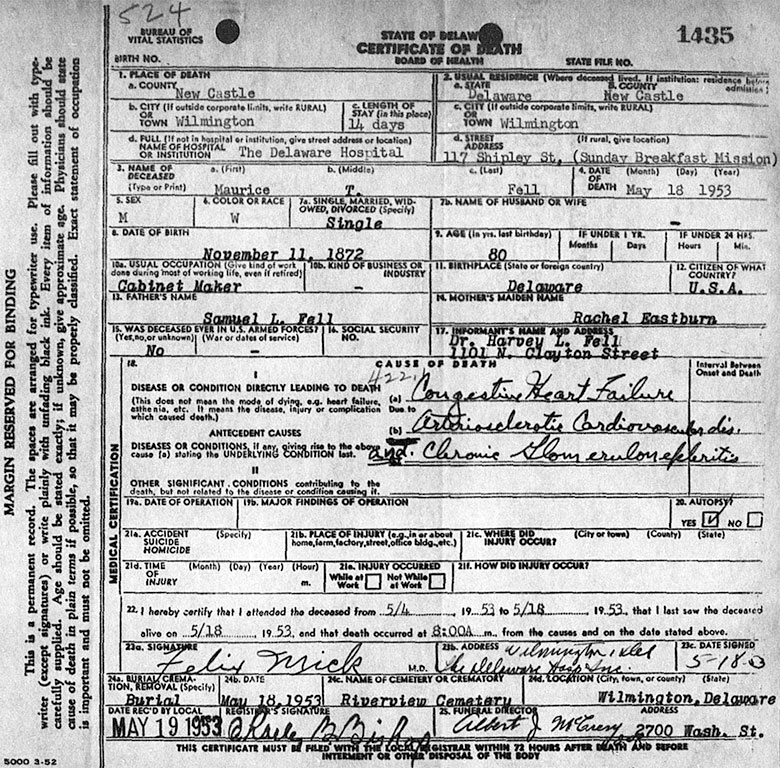 524
BUREAU OF
VITAL STATISTICS
STATE OF DELAWARE
CERTIFICATE OF DEATH
BOARD OF HEALTH
1435
BIRTH NO.
STATE FILE NO.
1. PLACE OF DEATH
a. COUNTY
New Castle
2. USUAL RESIDENCE (Where deceased lived. If institution: residence before admission)
a. STATE
Delaware
b. COUNTY
New Castle
b. CITY (If outside corporate limits, write RURAL)
OR
TOWN Wilmington
c. LENGTH OF
STAY (in this place)
14 days
c. CITY (If outside corporate limits, write RURAL)
OR
TOWN Wilmington
d. FULL (If not in hospital or institution, give street address or location)
NAME OF HOSPITAL
OR INSTITUTION The Delaware Hospital
d. STREET (If rural, give location)
ADDRESS
117 Shipley St, (Sunday Breakfast Mission)
3. NAME OF
DECEASED
(Type or Print)
a. (First)
Maurice
b. (Middle)
T.
c. (Last)
Fell
4. DATE (Month) (Day) (Year)
OF
DEATH May 18 1953
5. SEX
M
6. COLOR OR RACE
W
7a. SINGLE, MARRIED, WIDOWED, DIVORCED (Specify)
Single
7b. NAME OF HUSBAND OR WIFE
-
8. DATE OF BIRTH
November 11, 1872
9. AGE (In yrs. last birthday)
80
IF UNDER 1 YR.
Months Days
IF UNDER 24 HRS.
Hours Min.
10a. USUAL OCCUPATION (Give kind of work
done during most of working life, even if retired)
Cabinet Maker
10b. KIND OF BUSINESS OR
INDUSTRY
-
11. BIRTHPLACE (State or foreign country)
Delaware
12. CITIZEN OF WHAT
COUNTRY?
U.S.A.
13. FATHER'S NAME
Samuel L. Fell
14. MOTHER'S MAIDEN NAME
Rachel Eastburn
15. WAS DECEASED EVER IN U.S. ARMED FORCES?
(Yes, no, or unknown) (War or dates of service)
No -
16. SOCIAL SECURITY
NO.
17. INFORMANT'S NAME AND ADDRESS
Dr. Harvey L. Fell
1101 N. Clayton Street
18.
CAUSE OF DEATH
Interval Between
Onset and Death
I
DISEASE OR CONDITION DIRECTLY LEADING TO DEATH
422.1
(This does not mean the mode of dying, e.g. heart failure,
asthenia, etc. It means the disease, injury or complication
which caused death.)
(a) Congestive Heart Failure
Due to
ANTECEDENT CAUSES
(b) Arteriosclerotic Cardiovascular dis.
DISEASES OR CONDITIONS, if any, giving rise to the above
cause (a) stating the UNDERLYING CONDITION last.
and Chronic Glomerulonephritis
II
OTHER SIGNIFICANT CONDITIONS contributing to the
death, but not related to the disease or condition causing it.
19a. DATE OF OPERATION
19b. MAJOR FINDINGS OF OPERATION
20. AUTOPSY?
YES ☑ NO ☐
21a. ACCIDENT (Specify)
SUICIDE
HOMICIDE
21b. PLACE OF INJURY (e.g., in or about
home, farm, factory, street, office bldg., etc.)
21c. WHERE DID (City or town) (County) (State)
INJURY OCCUR?
21d. TIME (Month) (Day) (Year) (Hour)
OF
INJURY m.
21e. INJURY OCCURRED
While at Work ☐ Not While at Work ☐
21f. HOW DID INJURY OCCUR?
22. I hereby certify that I attended the deceased from 5/4, 1953 to 5/18, 1953, that I last saw the deceased
alive on 5/18, 1953, and that death occurred at 8:00A m., from the causes and on the date stated above.
23a. SIGNATURE
Felix Mick M.D.
23b. ADDRESS Wilmington, Del
The Delaware Hosp Inc.
23c. DATE SIGNED
5-18-53
24a. BURIAL, CREMATION, REMOVAL (Specify)
Burial
24b. DATE
May 18, 1953
24c. NAME OF CEMETERY OR CREMATORY
Riverview Cemetery
24d. LOCATION (City, town, or county) (State)
Wilmington, Delaware
DATE REC'D BY LOCAL
MAY 19 1953
REGISTRAR'S SIGNATURE
25. FUNERAL DIRECTOR
Albert J.
ADDRESS
2700 Wash. St.
THIS CERTIFICATE MUST BE FILED WITH THE LOCAL REGISTRAR WITHIN 72 HOURS AFTER DEATH AND BEFORE
INTERMENT OR OTHER DISPOSAL OF THE BODY
5000 3-52
MEDICAL CERTIFICATION
MARGIN RESERVED FOR BINDING
This is a permanent record. The spaces are arranged for typewriter use. Please fill out with type-
writer (except signatures) or write plainly with unfading black ink. Every item of information should be
carefully supplied. Age should be stated exactly; if unknown, give approximate age. Physicians should state
cause of death in plain terms if possible, so that it may be properly classified. Exact statement of occupation
is important and must not be omitted.